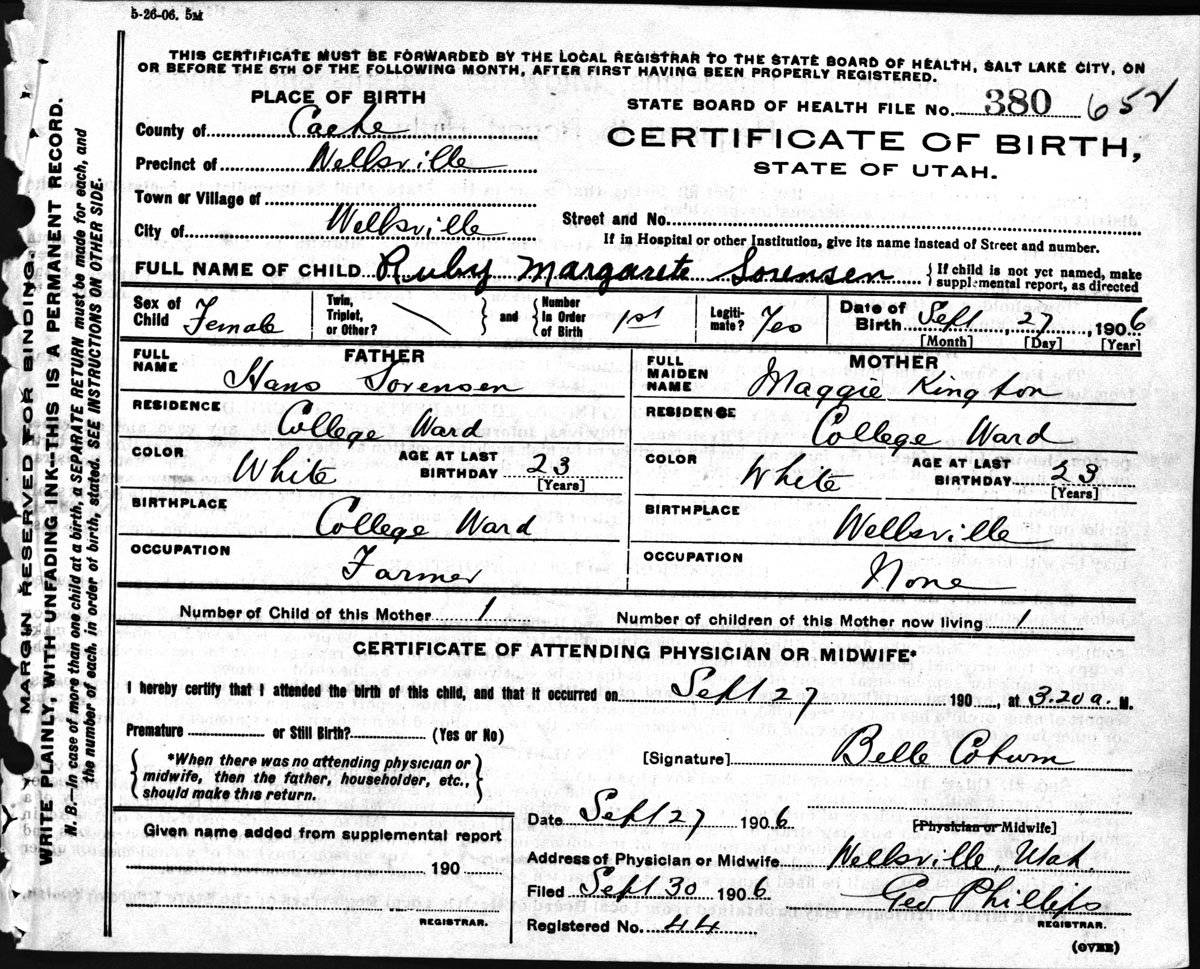 5-26-06. 5M
THIS CERTIFICATE MUST BE FORWARDED BY THE LOCAL REGISTRAR TO THE STATE BOARD OF HEALTH, SALT LAKE CITY, ON
OR BEFORE THE 5TH OF THE FOLLOWING MONTH, AFTER FIRST HAVING BEEN PROPERLY REGISTERED.
PLACE OF BIRTH
County of Cache
Precinct of Wellsville
Town or Village of
City of Wellsville
STATE BOARD OF HEALTH FILE No. 380 652
CERTIFICATE OF BIRTH,
STATE OF UTAH.
Street and No.
If in Hospital or other Institution, give its name instead of Street and number.
FULL NAME OF CHILD Ruby Margarete Sorensen { If child is not yet named, make supplemental report, as directed
Sex of Child Female Twin, Triplet, or Other? \ } and { Number in Order of Birth 1st Legiti-mate? Yes Date of Birth Sept. 27, 1906
[Month] [Day] [Year]
FATHER
FULL NAME Hans Sorensen
RESIDENCE College Ward
COLOR White AGE AT LAST BIRTHDAY 23
[Years]
BIRTHPLACE College Ward
OCCUPATION Farmer
MOTHER
FULL MAIDEN NAME Maggie Kington
RESIDENCE College Ward
COLOR White AGE AT LAST BIRTHDAY 23
[Years]
BIRTHPLACE Wellsville
OCCUPATION None
Number of Child of this Mother 1 Number of children of this Mother now living 1
CERTIFICATE OF ATTENDING PHYSICIAN OR MIDWIFE*
I hereby certify that I attended the birth of this child, and that it occurred on Sept 27 190, at 3.20 a. M.
Premature or Still Birth? (Yes or No)
{ *When there was no attending physician or midwife, then the father, householder, etc., should make this return. }
[Signature] Belle Coburn
[Physician or Midwife]
Date Sept 27 1906
Address of Physician or Midwife Wellsville, Utah
Filed Sept 30 1906 Geo Phillips
REGISTRAR.
Registered No. 44
(OVER)
Given name added from supplemental report
190
REGISTRAR.
MARGIN RESERVED FOR BINDING.
WRITE PLAINLY, WITH UNFADING INK--THIS IS A PERMANENT RECORD.
N. B.--In case of more than one child at a birth, a SEPARATE RETURN must be made for each, and
the number of each, in order of birth, stated. SEE INSTRUCTIONS ON OTHER SIDE.